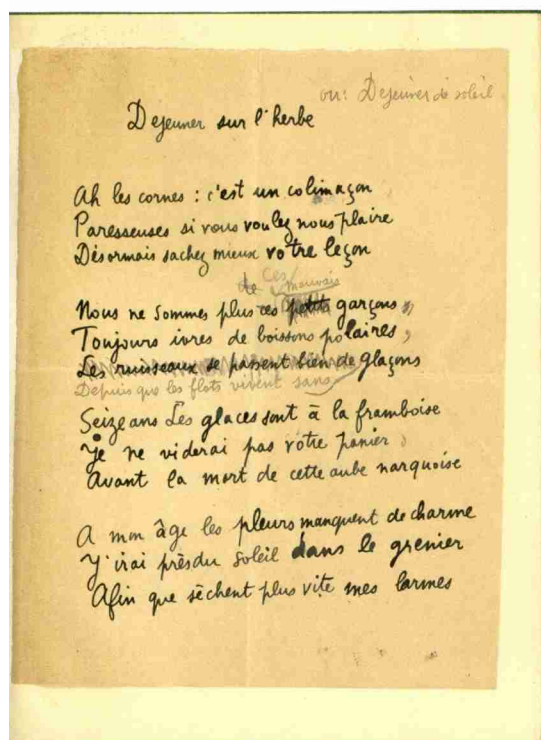 ou: Dejeuner de soleil
Dejeuner sur l'herbe
Ah les cornes : c'est un colimaçon
Paresseuses si vous voulez nous plaire
Désormais sachez mieux votre leçon
de Ces mauvais
Nous ne sommes plus ces petits garçons,
Toujours ivres de boissons polaires,
Les ruisseaux se passent bien de glaçons
Depuis que les flots vivent sans
Seize ans Les glaces sont à la framboise
Je ne viderai pas votre panier
Avant la mort de cette aube narquoise
A mon âge les pleurs manquent de charme
J'irai près du soleil dans le grenier
Afin que sèchent plus vite mes larmes